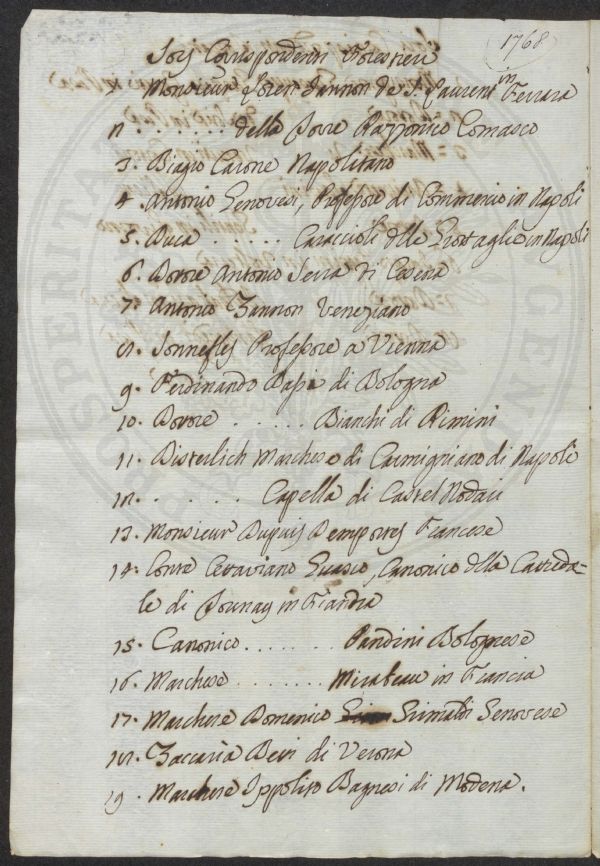 1768
Socj Corrispondenti Forestieri
1. Monsieur de S. Laurent in Ferrara
2. . . . . . . della Torre Razzonico Comasco
3. Biagio Carone Napolitano
4. Antonio Genovesi, Professore di Commercio in Napoli
5. Duca . . . . . Caraccioli delle Grottaglie in Napoli
6. Dottore Antonio Serra di Cesena
7. Antonio Zannon Veneziano
8. Sonnesfels Professore a Vienna
9. Ferdinando Bassi di Bologna
10. Dottore . . . . . . Bianchi di Rimini
11. Bisterlich Marchese di Carmigniano di Napoli
12. . . . . . . Capella di Castel
13. Monsieur Dupuis Demportes Francese
14. Conte Guasco, Canonico della Cattedra-
le di Tournay in Fiandra
15. Canonico . . . . . . . Pandini Bolognese
16. Marchese . . . . . . . Mirabeau in Francia
17. Marchese Domenico Grimaldi Genovese
18. Zaccaria Betti di Verona
19. Marchese Ippolito Bagnesi di Modena.
PROSPER
CEND